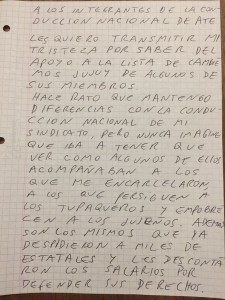 A LOS INTEGRANTES DE LA CON
DUCCION NACIONAL DE ATE
LES QUIERO TRANSMITIR MI
TRISTEZA POR SABER DEL
APOYO A LA LISTA DE CAMBIE
MOS JUJUY DE ALGUNOS DE
SUS MIEMBROS.
HACE RATO QUE MANTENGO
DIFERENCIAS CON LA CONDU
CCION NACIONAL DE MI
SINDICATO, PERO NUNCA IMAGINE
QUE IBA A TENER QUE
VER COMO ALGUNOS DE ELLOS
ACOMPAÑABAN A LOS
QUE ME ENCARCELARON
A LOS QUE PERSIGUEN A
LOS TUPAQUEROS Y EMPOBRE
CEN A LOS JUJEÑOS.
SON LOS MISMOS QUE YA
DESPIDIERON A MILES DE
ESTATALES Y LES DESCONTA
RON LOS SALARIOS POR
DEFENDER SUS DERECHOS.